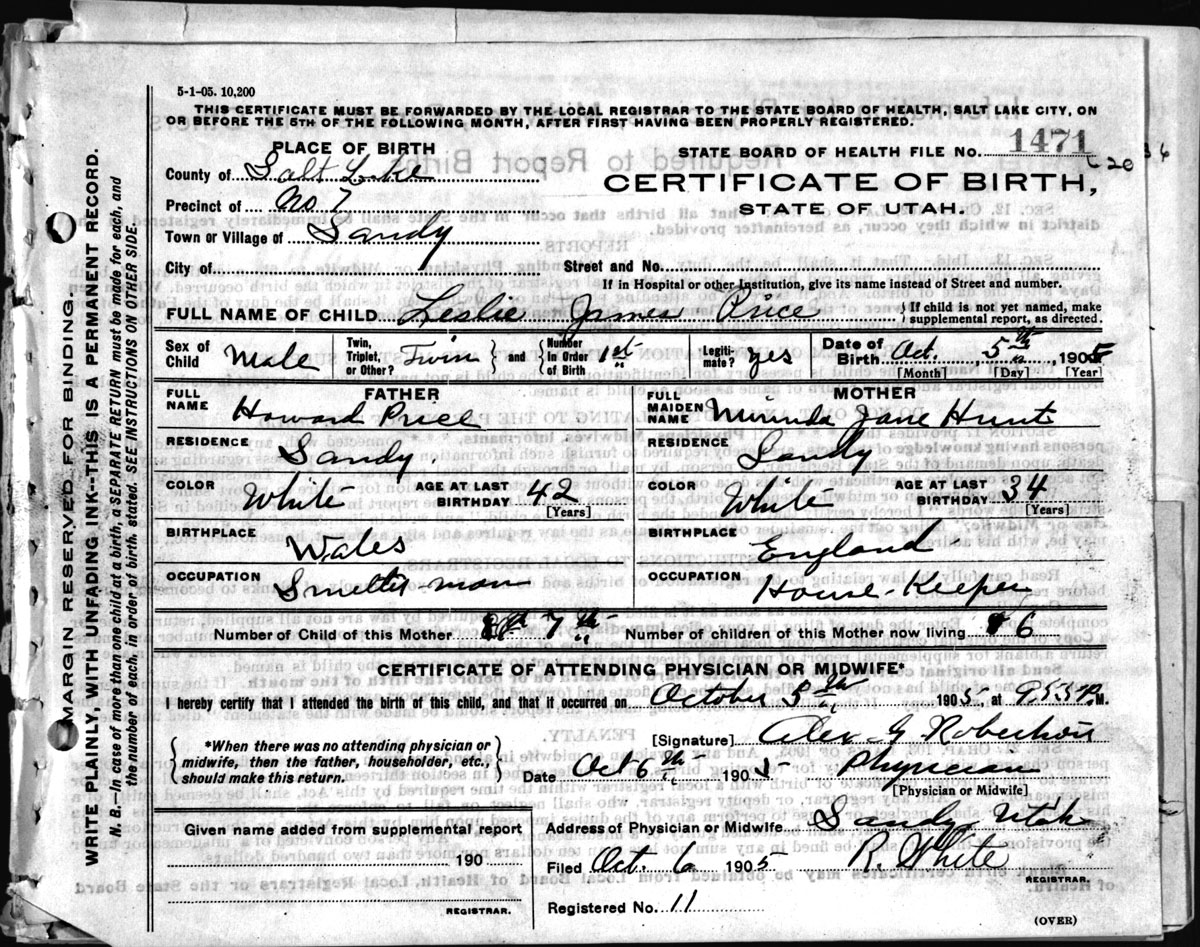 5-1-05. 10,200
THIS CERTIFICATE MUST BE FORWARDED BY THE LOCAL REGISTRAR TO THE STATE BOARD OF HEALTH, SALT LAKE CITY, ON
OR BEFORE THE 5TH OF THE FOLLOWING MONTH, AFTER FIRST HAVING BEEN PROPERLY REGISTERED.
PLACE OF BIRTH
STATE BOARD OF HEALTH FILE NO. 1471
County of Salt Lake
CERTIFICATE OF BIRTH,
Precinct of No. 7
STATE OF UTAH.
Town or Village of Sandy
City of
Street and No.
If in Hospital or other Institution, give its name instead of Street and number.
FULL NAME OF CHILD Leslie James Price { If child is not yet named, make supplemental report, as directed.
Sex of Child Male Twin, Triplet, or Other? Twin } and { Number in Order of Birth 1st Legiti-mate? yes Date of Birth Oct. 5th 1905
[Month] [Day] [Year]
FATHER
MOTHER
FULL NAME Howard Price
FULL MAIDEN NAME Mirinda Jane Hunt
RESIDENCE Sandy
RESIDENCE Sandy
COLOR White AGE AT LAST BIRTHDAY 42 [Years]
COLOR White AGE AT LAST BIRTHDAY 34 [Years]
BIRTHPLACE Wales
BIRTHPLACE England
OCCUPATION Smelter-man
OCCUPATION House-Keeper
Number of Child of this Mother 7th
Number of children of this Mother now living 6
CERTIFICATE OF ATTENDING PHYSICIAN OR MIDWIFE*
I hereby certify that I attended the birth of this child, and that it occurred on October 5th 1905 at 9.53 P.M.
{ *When there was no attending physician or midwife, then the father, householder, etc., should make this return. }
[Signature] Alex G Robertson
Date Oct 6th 1905 Physician
[Physician or Midwife]
Given name added from supplemental report
190
REGISTRAR.
Address of Physician or Midwife Sandy Utah
Filed Oct. 6 1905 R. White
REGISTRAR.
Registered No. 11
(OVER)
MARGIN RESERVED FOR BINDING.
WRITE PLAINLY, WITH UNFADING INK--THIS IS A PERMANENT RECORD.
N. B.—In case of more than one child at a birth, a SEPARATE RETURN must be made for each, and
the number of each, in order of birth, stated. SEE INSTRUCTIONS ON OTHER SIDE.